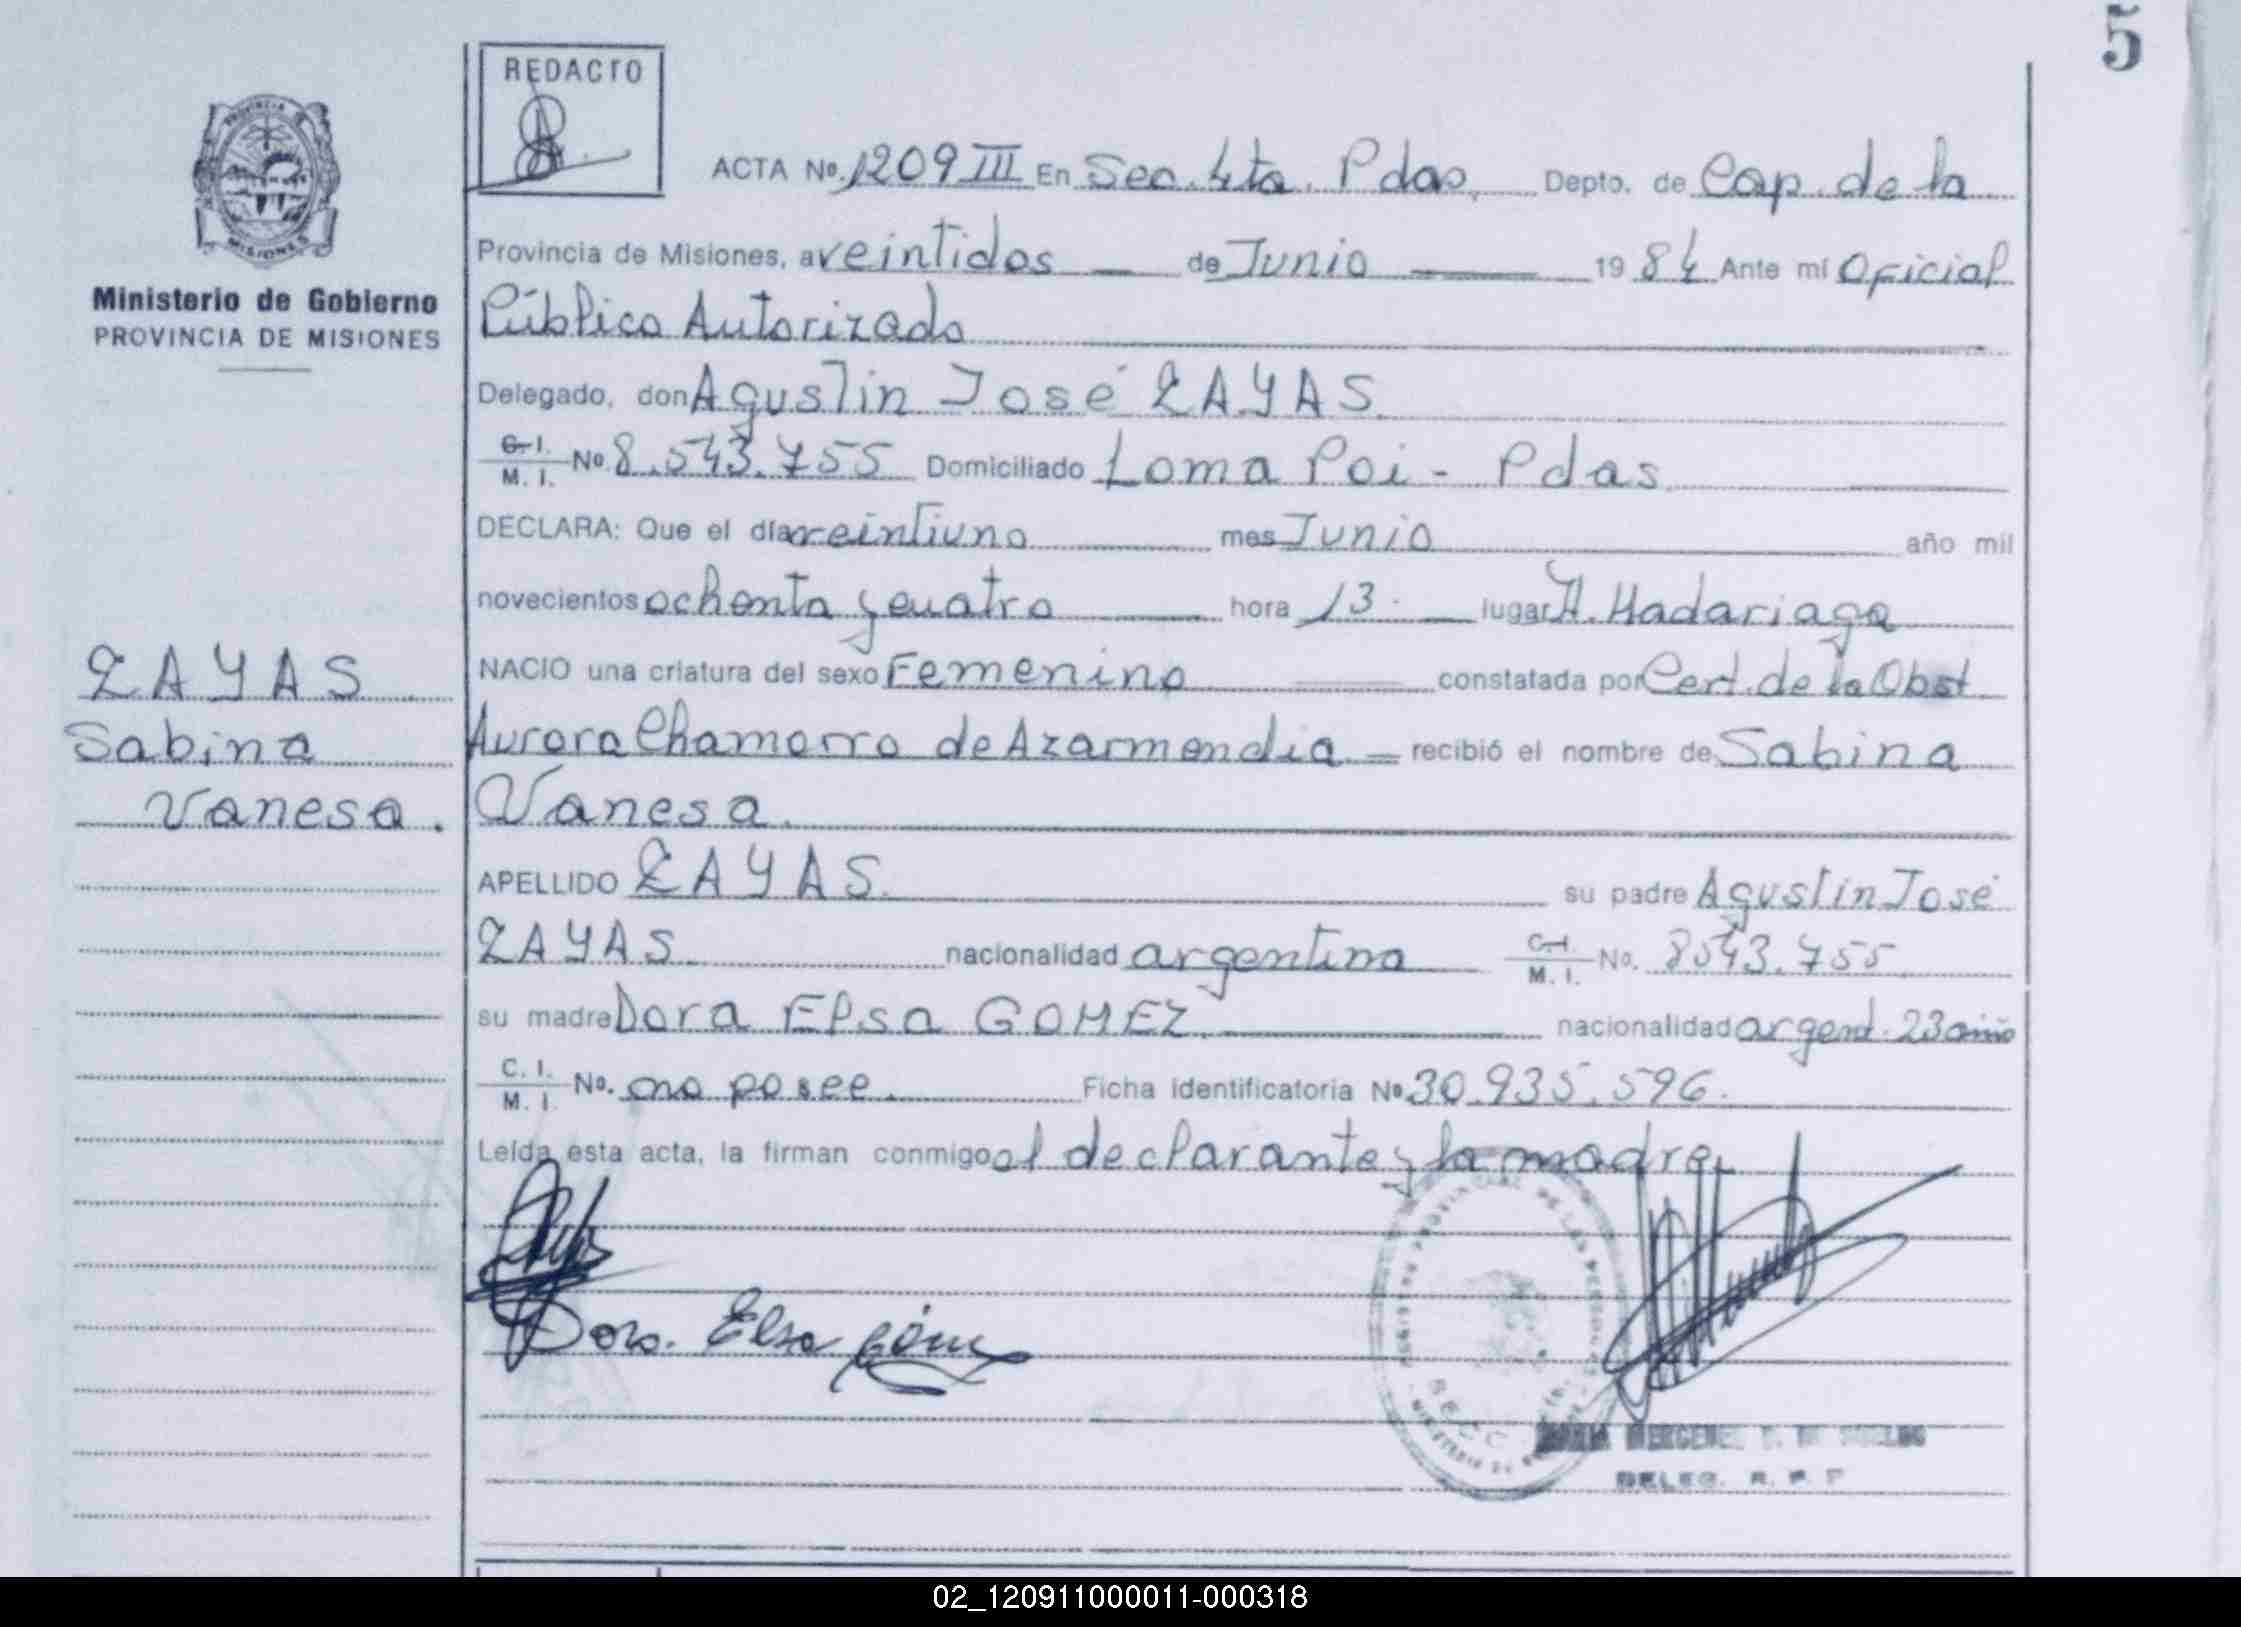 5
REDACTO
PROVINCIA DE
MISIONES
Ministerio de Gobierno
PROVINCIA DE MISIONES
ACTA No. 1209 III En Sec. 4ta. Pdas. Depto. de Cap. de la
Provincia de Misiones, a veintidos de Junio 19 84 Ante mí Oficial
Público Autorizado
Delegado, don Agustin José ZAYAS.
C. I.
M. I. No. 8.543.755 Domiciliado Loma Poi - Pdas
DECLARA: Que el día veintiuno mes Junio año mil
novecientos ochenta y cuatro hora 13. lugar H. Madariaga
NACIO una criatura del sexo Femenino constatada por Cert. de la Obst
Aurora Chamorro de Azarmendia = recibió el nombre de Sabina
Vanesa.
APELLIDO ZAYAS. su padre Agustin José
ZAYAS nacionalidad argentina C. I.
M. I. No. 8543.755
su madre Dora Elsa GOMEZ. nacionalidad argent. 23 años
C. I.
M. I. No. no posee. Ficha identificatoria No 30.935.596.
Leída esta acta, la firman conmigo el declarante y la madre.
ZAYAS
Sabina
Vanesa.
Dora Elsa Góm
DELEG. R. P. P
02_120911000011-000318